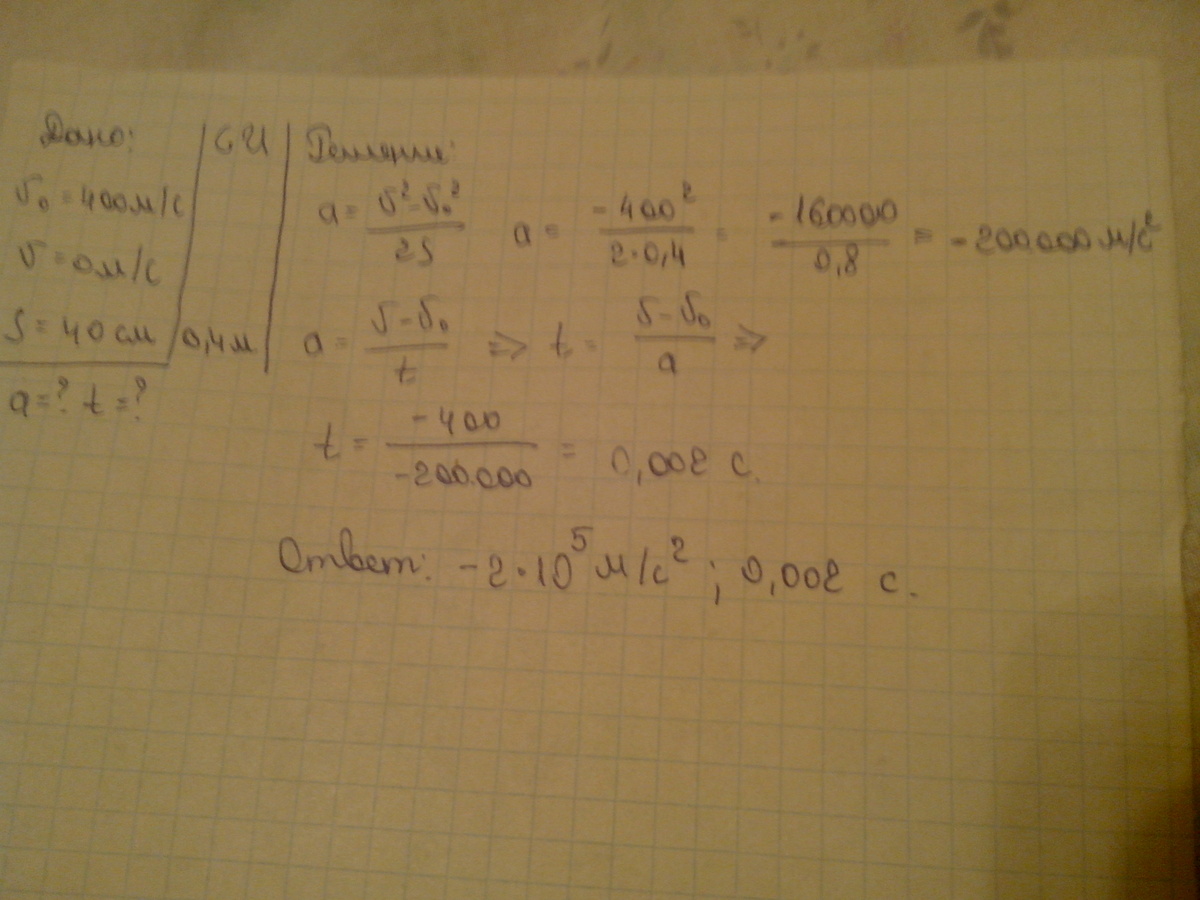 Дано: | СИ | Решение:
v₀ = 400 м/с
v = 0 м/с
S = 40 см | 0,4 м
a = ? t = ?
a = (v² - v₀²)/(2S) a = (-400²)/(2·0,4) = (-160000)/(0,8) = -200.000 м/с²
a = (v - v₀)/t => t = (v - v₀)/a =>
t = (-400)/(-200.000) = 0,002 с.
Ответ: -2·10⁵ м/с²; 0,002 с.